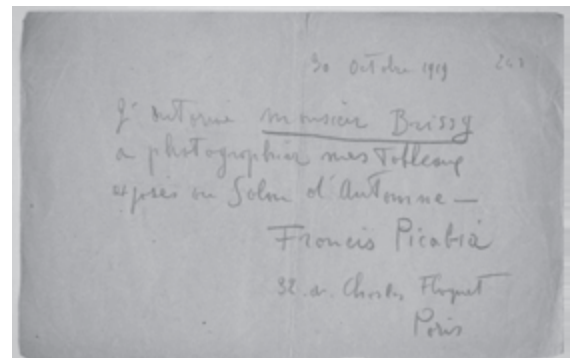 30 Octobre 1919 243
J'autorise monsieur Brissy
a photographier mes Tableaux
exposés au Salon d'Automne —
Francis Picabia
32 av. Charles Floquet
Paris